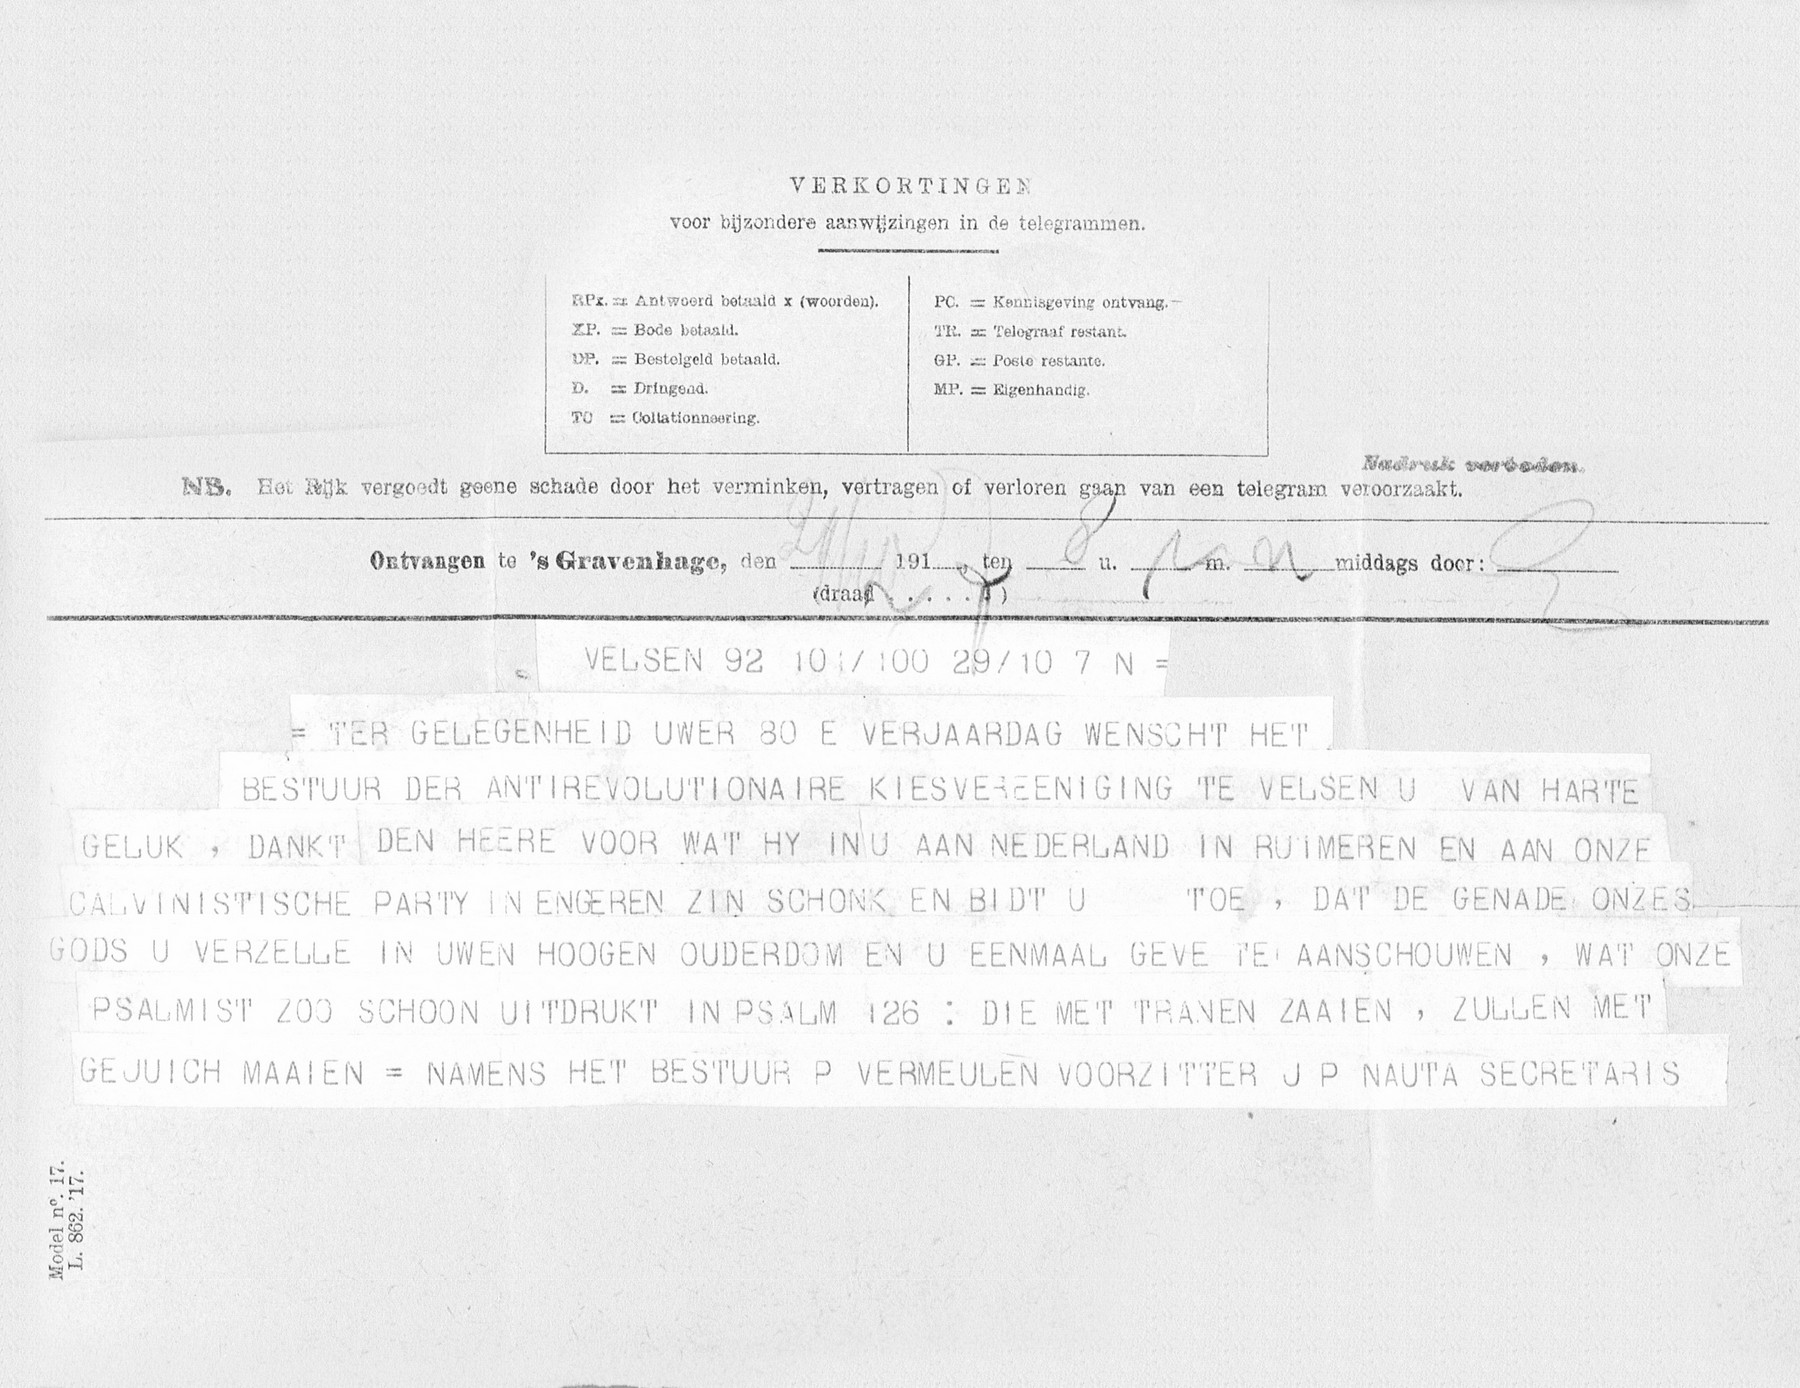 VERKORTINGEN
voor bijzondere aanwijzingen in de telegrammen.
RPx. = Antwoord betaald x (woorden).
XP. = Bode betaald.
DP. = Bestelgeld betaald.
D. = Dringend.
TC = Collationneering.
PC. = Kennisgeving ontvang.
TR. = Telegraaf restant.
GP. = Poste restante.
MP. = Eigenhandig.
Nadruk verboden.
NB. Het Rijk vergoedt geene schade door het verminken, vertragen of verloren gaan van een telegram veroorzaakt.
Ontvangen te 's Gravenhage, den 191 , ten 8 u. m. middags door:
(draad . . . . . )
VELSEN 92 101/100 29/10 7 N =
= TER GELEGENHEID UWER 80 E VERJAARDAG WENSCHT HET
BESTUUR DER ANTIREVOLUTIONAIRE KIESVEREENIGING TE VELSEN U VAN HARTE
GELUK , DANKT DEN HEERE VOOR WAT HY IN U AAN NEDERLAND IN RUIMEREN EN AAN ONZE
CALVINISTISCHE PARTY IN ENGEREN ZIN SCHONK EN BIDT U TOE , DAT DE GENADE ONZES
GODS U VERZELLE IN UWEN HOOGEN OUDERDOM EN U EENMAAL GEVE TE AANSCHOUWEN , WAT ONZE
PSALMIST ZOO SCHOON UITDRUKT IN PSALM 126 : DIE MET TRANEN ZAAIEN , ZULLEN MET
GEJUICH MAAIEN = NAMENS HET BESTUUR P VERMEULEN VOORZITTER J P NAUTA SECRETARIS
Model nº. 17.
L. 862. '17.